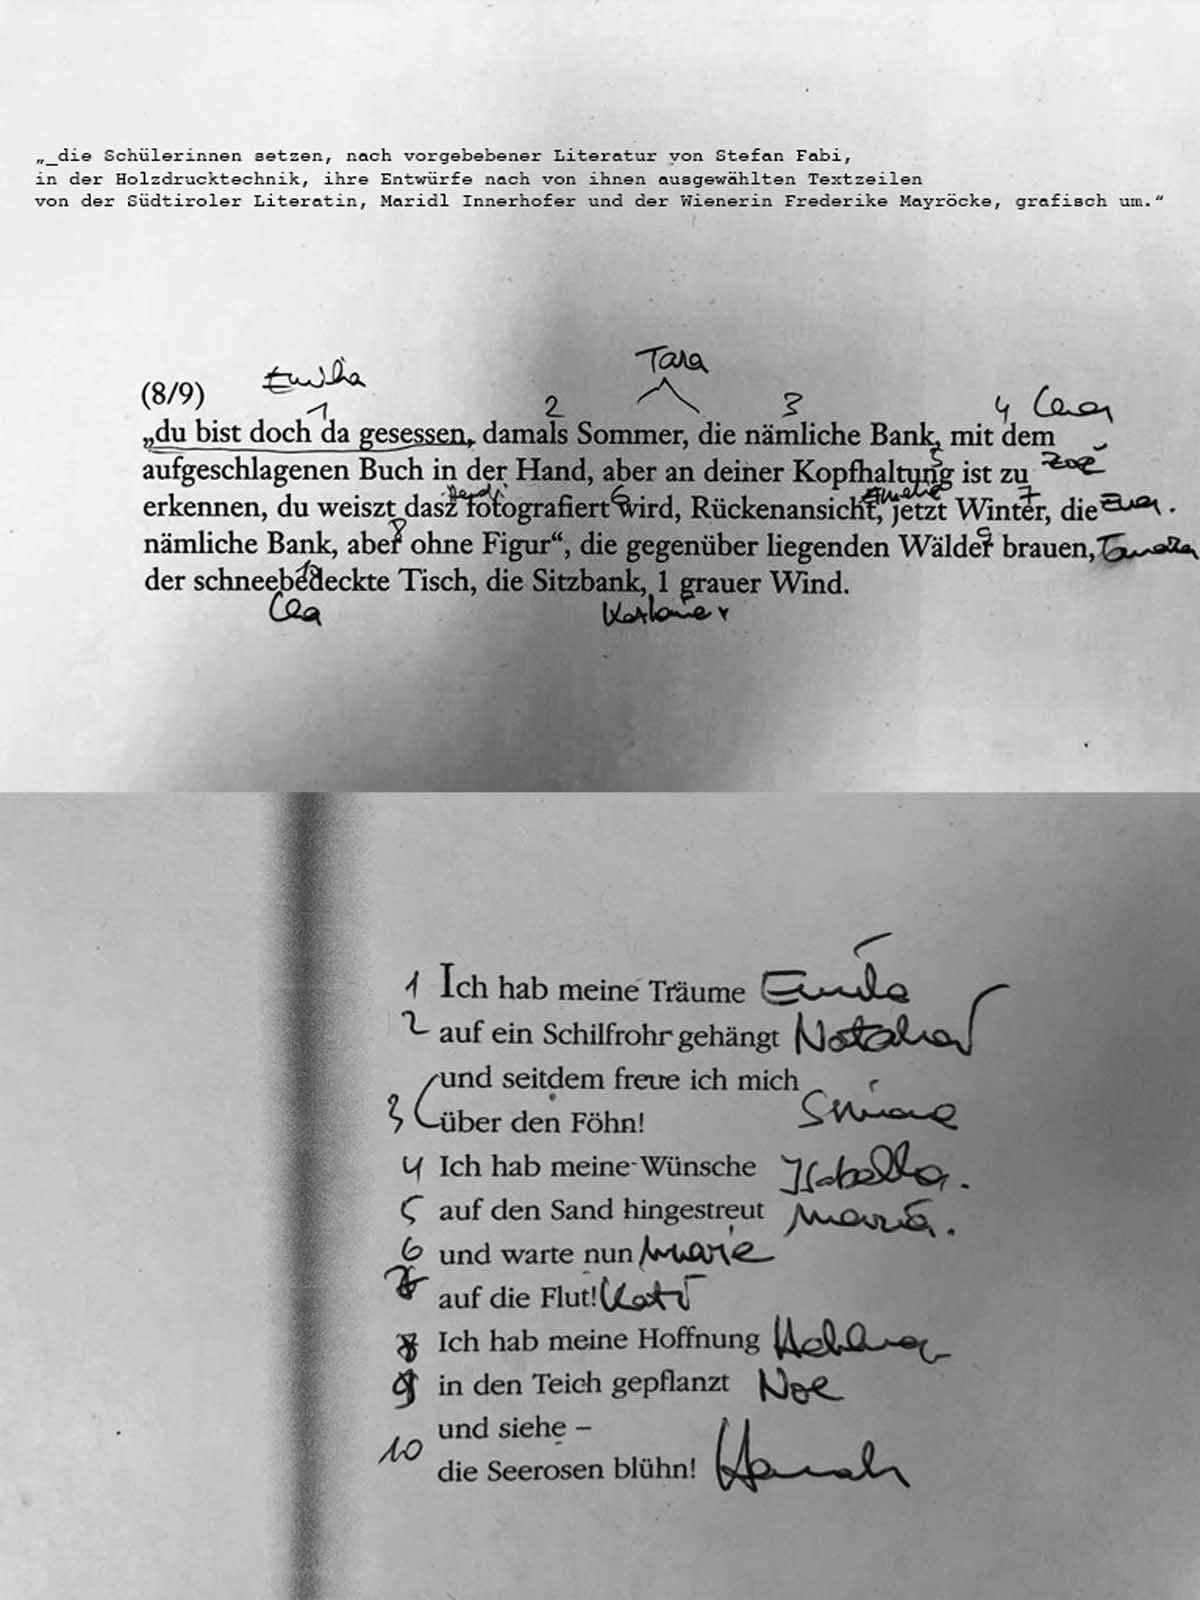 „_die Schülerinnen setzen, nach vorgebebener Literatur von Stefan Fabi,
in der Holzdrucktechnik, ihre Entwürfe nach von ihnen ausgewählten Textzeilen
von der Südtiroler Literatin, Maridl Innerhofer und der Wienerin Frederike Mayröcke, grafisch um.“
Emilia Tara
(8/9) 1 2 3 4
„du bist doch da gesessen, damals Sommer, die nämliche Bank, mit dem
aufgeschlagenen Buch in der Hand, aber an deiner Kopfhaltung ist zu Zoë
5
erkennen, du weiszt dasz fotografiert wird, Rückenansicht, jetzt Winter, die Eva.
6 7
nämliche Bank, aber ohne Figur“, die gegenüber liegenden Wälder brauen,
8 9
der schneebedeckte Tisch, die Sitzbank, 1 grauer Wind.
10
Lea
1 Ich hab meine Träume Emila
2 auf ein Schilfrohr gehängt
und seitdem freue ich mich
3 über den Föhn!
4 Ich hab meine Wünsche Isabella.
5 auf den Sand hingestreut Maria.
6 und warte nun Marie
7 auf die Flut! Kati
8 Ich hab meine Hoffnung
9 in den Teich gepflanzt Noe
und siehe –
10 die Seerosen blühn! Hannah